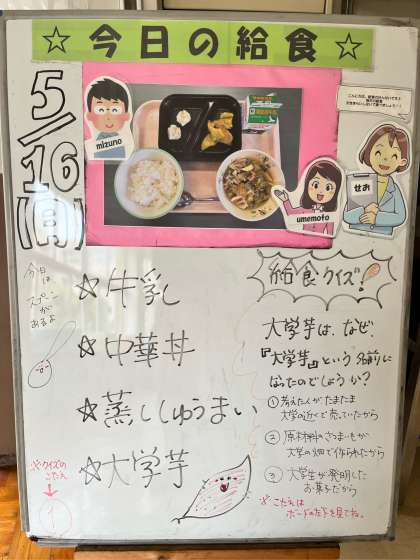 ☆今日の給食☆
5/16(月)
mizuno
umemoto
せお
今日は
スプーン
が
あるよ
☆牛乳
☆中華丼
☆蒸ししゅうまい
☆大学芋
給食クイズ!
大学芋は、なぜ、
『大学芋』という名前に
なったのでしょうか?
①考えた人がたまたま
大学の近くで売っていたから
②原材料のさつまいもが
大学の畑で作られたから
③大学生が発明した
お菓子だから
※こたえは
ボードの左下を見てね。
※クイズの
こたえ
↓
①